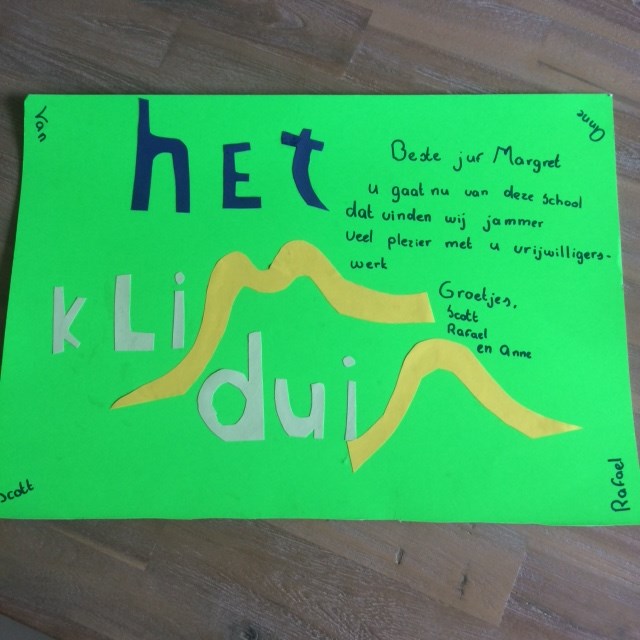 Van
Anne
het
Beste juf Margret
u gaat nu van deze school
dat vinden wij jammer
veel plezier met u vrijwilligers-
werk
Groetjes,
Scott
Rafael
en Anne
klim
duin
Scott
Rafael